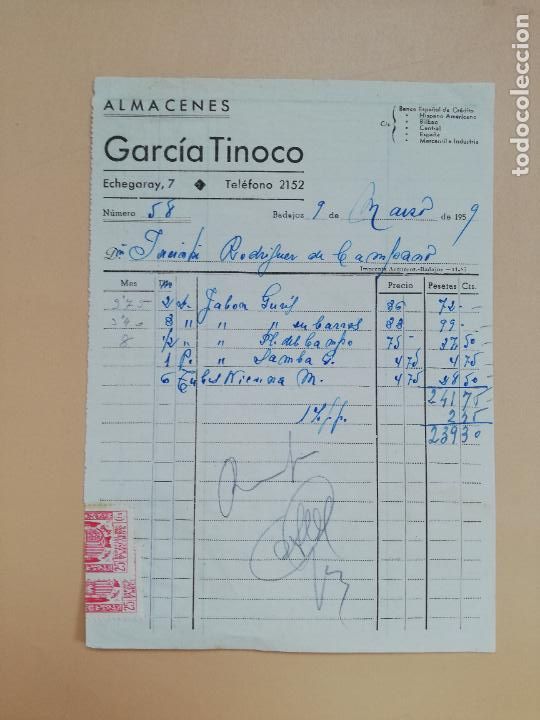 ALMACENES
García Tinoco
Echegaray, 7 ◆ Teléfono 2152
C/c Banco Español de Crédito
" Hispano Americano
" Bilbao
" Central
" España
" Mercantil e Industria
Número 58 Badajoz 9 de Marzo de 1959
Rodriguez de Campano
Imprenta Arqueros.-Badajoz
Mes Día Precio Pesetas Cts.
2 Jabon 36 72 -
3 " " " en barras 33 99 -
1/2 " " Fl. del Campo 75 - 37 50
1 P. " Samba G. 4 75 4 75
6 M. 4 75 28 50
241 75
2 35
239 30
todocoleccion